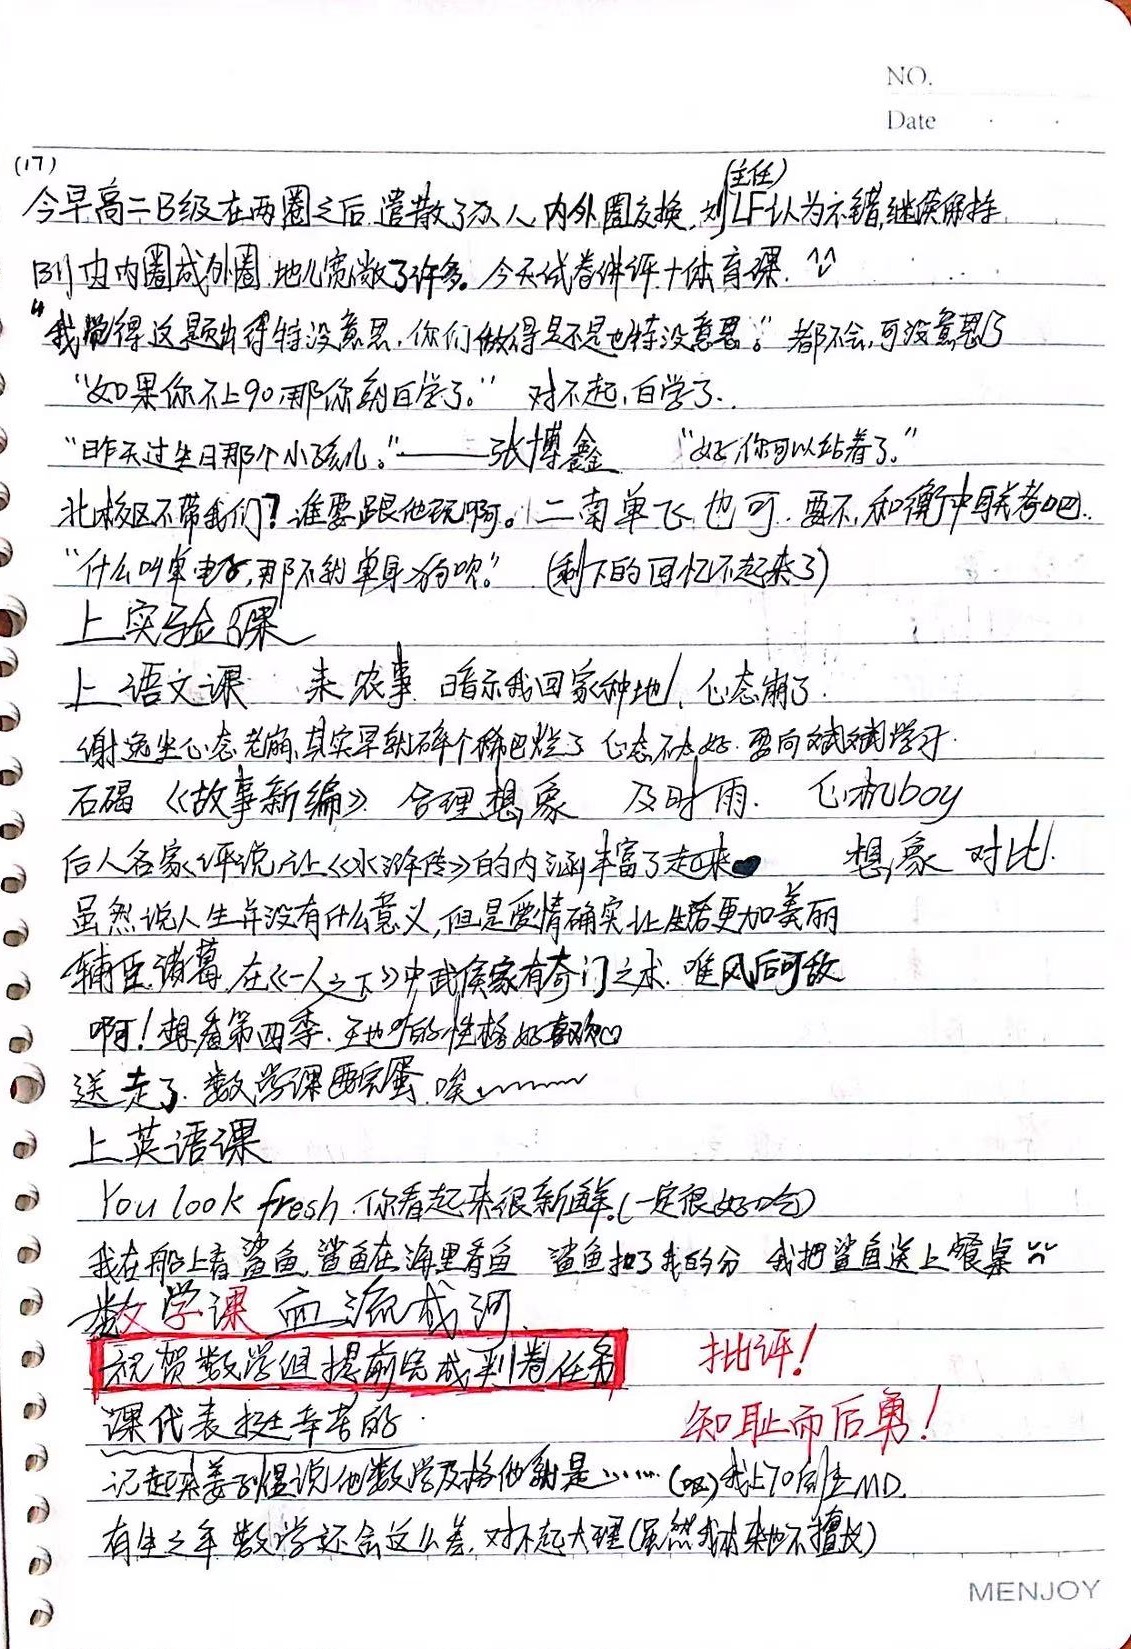 NO.
Date
(17)
(主任)
今早高二B级在两圈之后,遣散了众人,内外圈交换,刘LF认为不错,继续保持
B1由内圈成外圈,地儿宽敞了许多。今天试卷讲评+体育课.
"我觉得这题出得特没意思,你们做得是不是也特没意思。"都不会,可没意思了
"如果你不上90,那你就白学了。" 对不起,白学了.
"昨天过生日那个小孩儿。"——张博鑫 "好你可以站着了。"
北校区不带我们?谁要跟他玩啊。二南单飞也可.要不,和衡中联考吧.
"什么叫单电子,那不就单身狗呗。" (剩下的回忆不起来了)
上实验课
上语文课 来农事 暗示我回家种地,心态崩了.
谢逸坐心态老崩,其实早就碎个稀巴烂了 心态不太好.要向斌斌学习.
石碣 《故事新编》 合理想象 及时雨. 心机boy
后人名家评说让《水浒传》的内涵丰富了起来 想象 对比.
虽然说人生并没有什么意义,但是爱情确实让生活更加美丽
辅臣诸葛,在《一人之下》中武侯家有奇门之术.唯风后可敌
啊!想看第四季.王也的性格好喜欢
送走了.数学课要完蛋.唉
上英语课
You look fresh.你看起来很新鲜.(一定很好吃)
我在船上看鲨鱼,鲨鱼在海里看鱼 鲨鱼扣了我的分 我把鲨鱼送上餐桌
数学课 血流成河.
祝贺数学组提前完成判卷任务 批评!
课代表挺辛苦的. 知耻而后勇!
记起来姜子煜说他数学及格他就是…… 我上70 MD.
有生之年数学还会这么差.对不起大理(虽然我本来也不擅长)
MENJOY